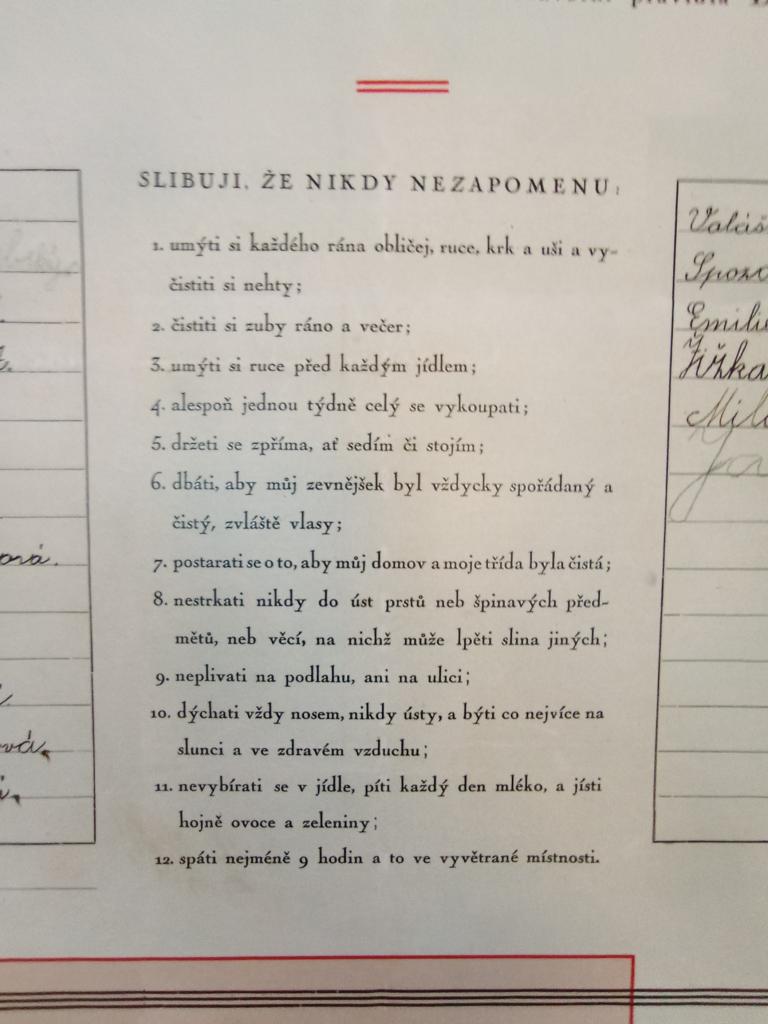 SLIBUJI, ŽE NIKDY NEZAPOMENU:
1. umýti si každého rána obličej, ruce, krk a uši a vy-
čistiti si nehty;
2. čistiti si zuby ráno a večer;
3. umýti si ruce před každým jídlem;
4. alespoň jednou týdně celý se vykoupati;
5. držeti se zpříma, ať sedím či stojím;
6. dbáti, aby můj zevnějšek byl vždycky spořádaný a
čistý, zvláště vlasy;
7. postarati se o to, aby můj domov a moje třída byla čistá;
8. nestrkati nikdy do úst prstů neb špinavých před-
mětů, neb věcí, na nichž může lpěti slina jiných;
9. neplivati na podlahu, ani na ulici;
10. dýchati vždy nosem, nikdy ústy, a býti co nejvíce na
slunci a ve zdravém vzduchu;
11. nevybírati se v jídle, píti každý den mléko, a jísti
hojně ovoce a zeleniny;
12. spáti nejméně 9 hodin a to ve vyvětrané místnosti.
Emili
Žižka
Mil